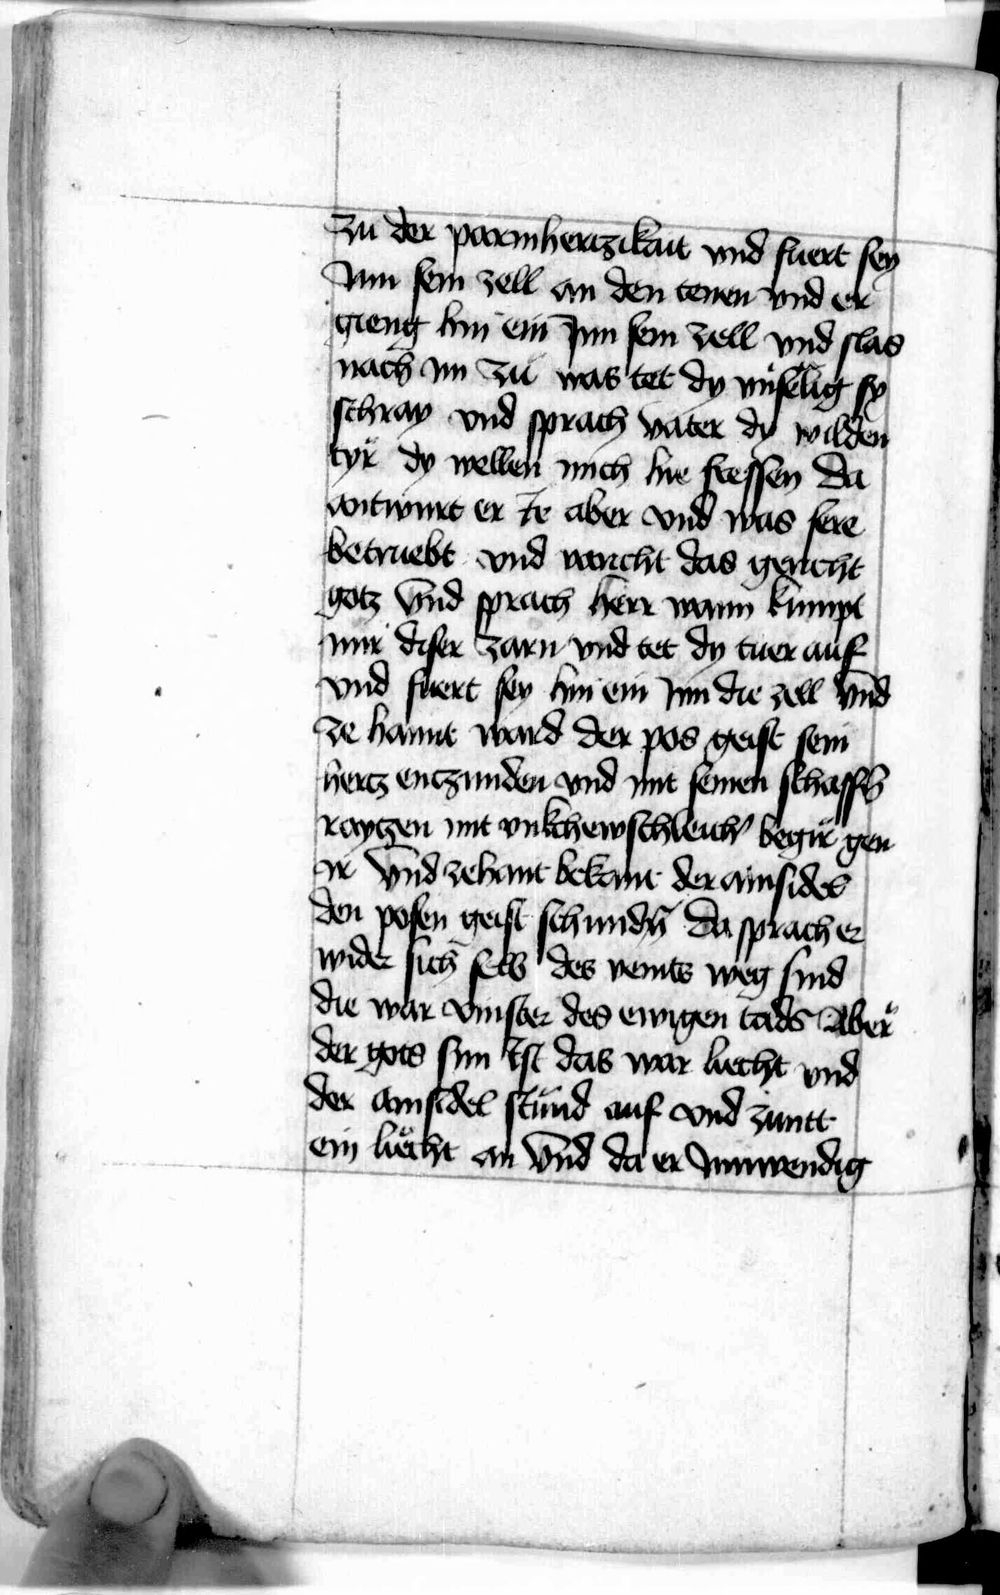 zu der parmhertzikait vnd fuert sey
Inn sein zell an den tenen vnd er
gieng hin ein Inn sein zell vnd slas
nach im zu was tet dy vnselig sy
schray vnd sprach vater dy wilden
tyͤr dy wellen mich hie fressen Da
antwurt er Ie aber vnd was sere
betruebt vnd varcht das gericht
gotz Vnd sprach herr wann kumpt
mir diser zarn vnd tet dy tuer auf
vnd fuert sey hin ein Inn die zell Vnd
ze hannt ward der pos geist sein
hertz entzunden vnd mit seinen schaffn̄
raytzen mit vnkchewschleich' begir gen
ir Vnd zehant bekant der ainsidel
den posen geist schundn̄ Da sprach er
wider sich selb des veints weg sind
die war vinster des ewigen tads Aber
der gots sun Ist das war liecht vnd
der ainsidel stund auf vnd zuntt
ein liecht an Vnd da er Innwendig